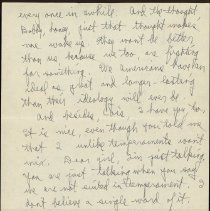 every once in awhile. And tho thought
Bobby, honey, just that thought makes
me wake up. They wont be better
than us because we too are fighting
for something. We Americans have an
ideal as great and longer lasting
than their ideology will ever be.
And besides, Lois I have you too.
It is nice, even though you told me
that 2 unlike temperaments wont
mix. Dear girl, I'm just talking,
You are just talking when you say
we are not suited in temperament. I
dont believe a single word of it.